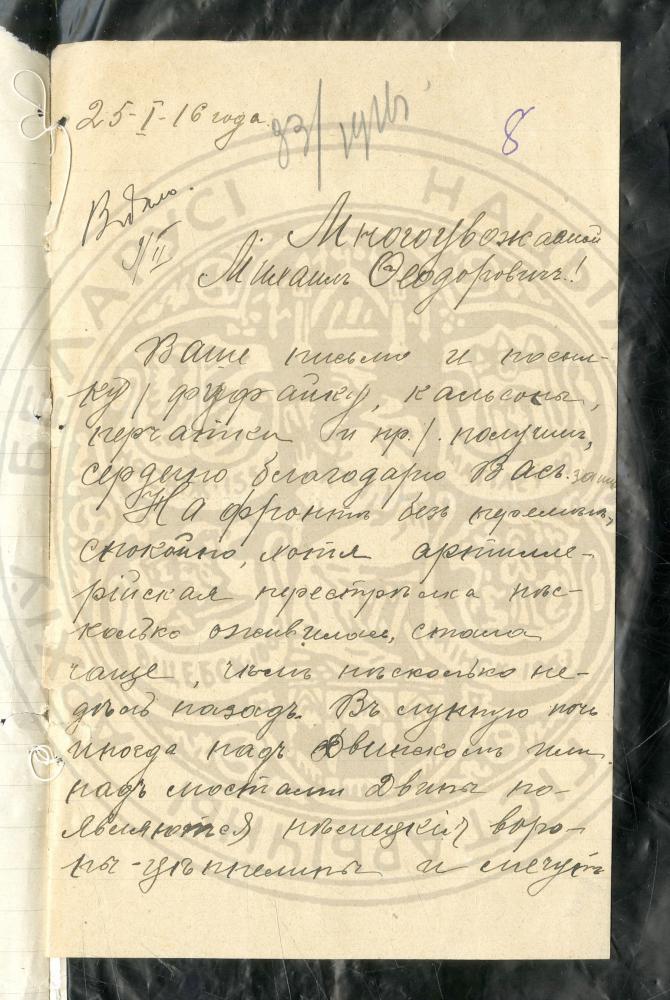 25-I-16 года.
83/1916
8
В дѣло.
9/II
Многоуважаемой
Михаилъ Ѳеодоровичъ!
Ваше письмо и посыл-
ку / фуфайку, кальсоны,
перчатки и пр./. получил,
сердечно благодарю Васъ.
На фронтѣ безъ перемѣнъ,
спокойно, хотя артилле-
рійская перестрѣлка нѣс-
колько оживилась, стала
чаще, чѣмъ нѣсколько не-
дѣль назадъ. Въ лунную ночь
иногда надъ Двинскомъ или
надъ мостами Двины по-
являются нѣмецкія воро-
ны-цѣппелины и мечутъ